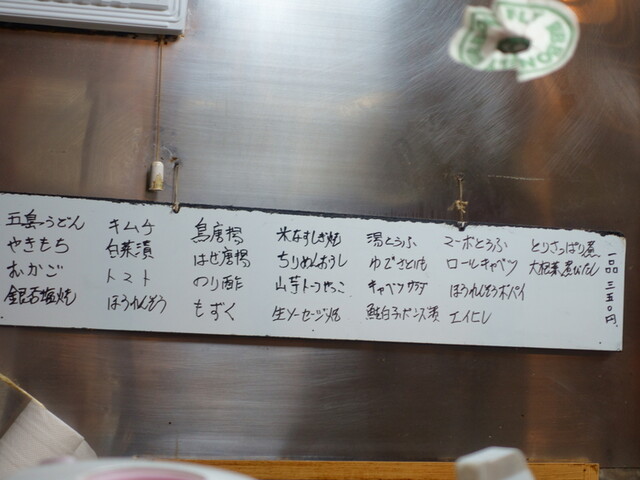 五島うどん
やきもち
むかご
銀杏塩焼
キムチ
白菜漬
トマト
ほうれんそう
鳥唐揚
はぜ唐揚
のり酢
もずく
ちりめんおろし
山芋トーフやっこ
生ソーセージ焼
湯とうふ
ゆでさといも
キャベツサラダ
鮭白子ポンズ漬
マーボとうふ
ロールキャベツ
ほうれんそうポパイ
エイヒレ
とりさっぱり煮
大根葉煮びたし
一品三五〇円